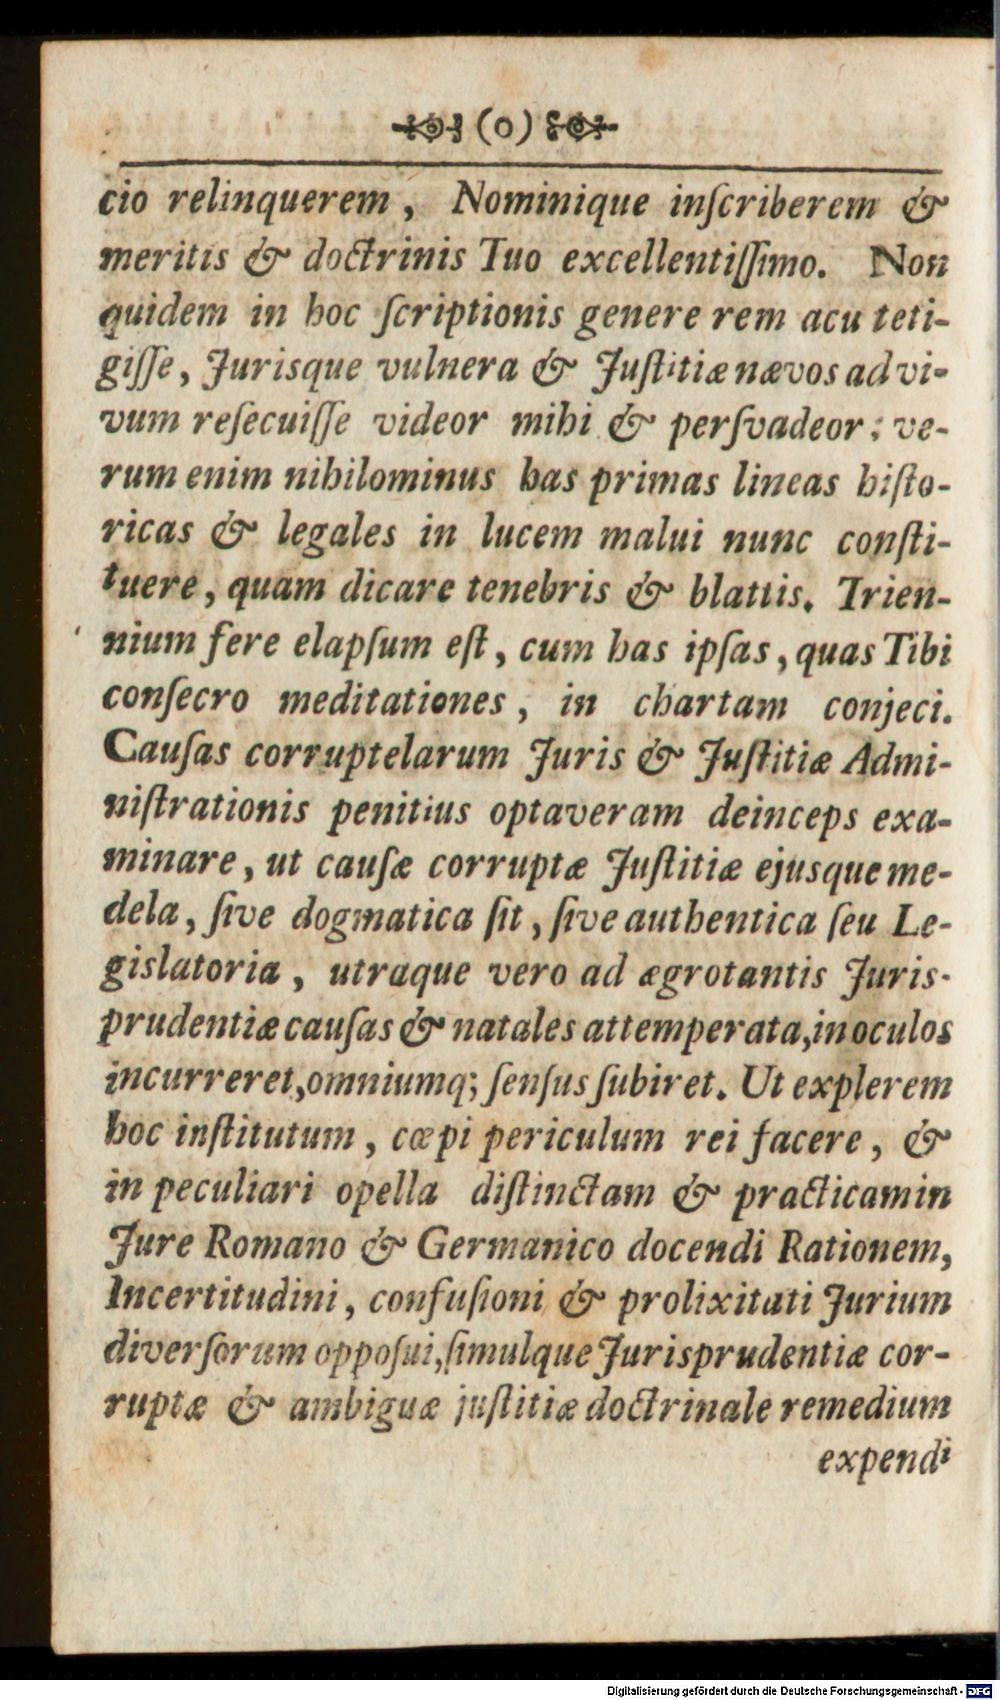 (o)
cio relinquerem, Nominique inſcriberem &
meritis & doctrinis Tuo excellentiſſimo. Non
quidem in hoc ſcriptionis genere rem acu teti-
giſſe, Jurisque vulnera & Juſtitiæ nævos ad vi-
vum reſecuiſſe videor mihi & perſvadeor: ve-
rum enim nihilominus has primas lineas hiſto-
ricas & legales in lucem malui nunc conſti-
tuere, quam dicare tenebris & blattis. Trien-
nium fere elapſum eſt, cum has ipſas, quas Tibi
conſecro meditationes, in chartam conjeci.
Cauſas corruptelarum Juris & Juſtitiæ Admi-
niſtrationis penitius optaveram deinceps exa-
minare, ut cauſæ corruptæ Juſtitiæ ejusque me-
dela, ſive dogmatica ſit, ſive authentica ſeu Le-
gislatoria, utraque vero ad ægrotantis Juris-
prudentiæ cauſas & natales attemperata, in oculos
incurreret, omniumq; ſenſus ſubiret. Ut explerem
hoc inſtitutum, cœpi periculum rei facere, &
in peculiari opella diſtinctam & practicam in
Jure Romano & Germanico docendi Rationem,
Incertitudini, confuſioni & prolixitati Jurium
diverſorum oppoſui, ſimulque Jurisprudentiæ cor-
ruptæ & ambiguæ juſtitiæ doctrinale remedium
expendi
Digitalisierung gefördert durch die Deutsche Forschungsgemeinschaft - DFG